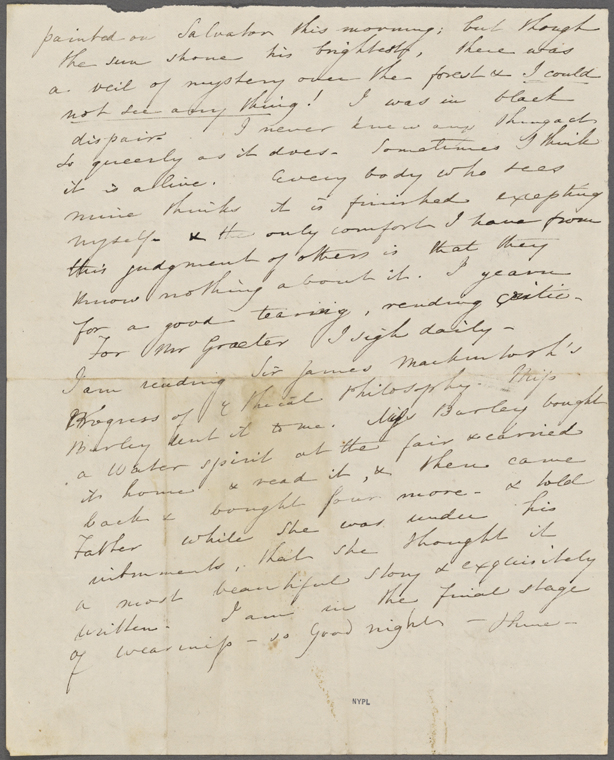 painted on Salvator this morning; but though
the sun shone his brightest, there was
a veil of mystery over the forest & I could
not see any thing! I was in black
dispair. I never knew any thing act
so queerly as it does. Sometimes I think
it is alive. Every body who sees
mine thinks it is finished excepting
myself & the only comfort I have from
this judgment of others is that they
know nothing about it. I yearn
for a good tearing, rending critic.
For Mr Graeter I sigh daily.
I am reading Sir James Mackintosh's
Progress of Ethical Philosophy. Miss
Burley lent it to me. Miss Burley bought
a Water spirit at the fair & carried
it home & read it, & then came
back & bought four more. & told
Father while she was under his
instruments, that she thought it
a most beautiful story & exquisitely
written. I am in the final stage
of weariness — so Good night — thine —
NYPL